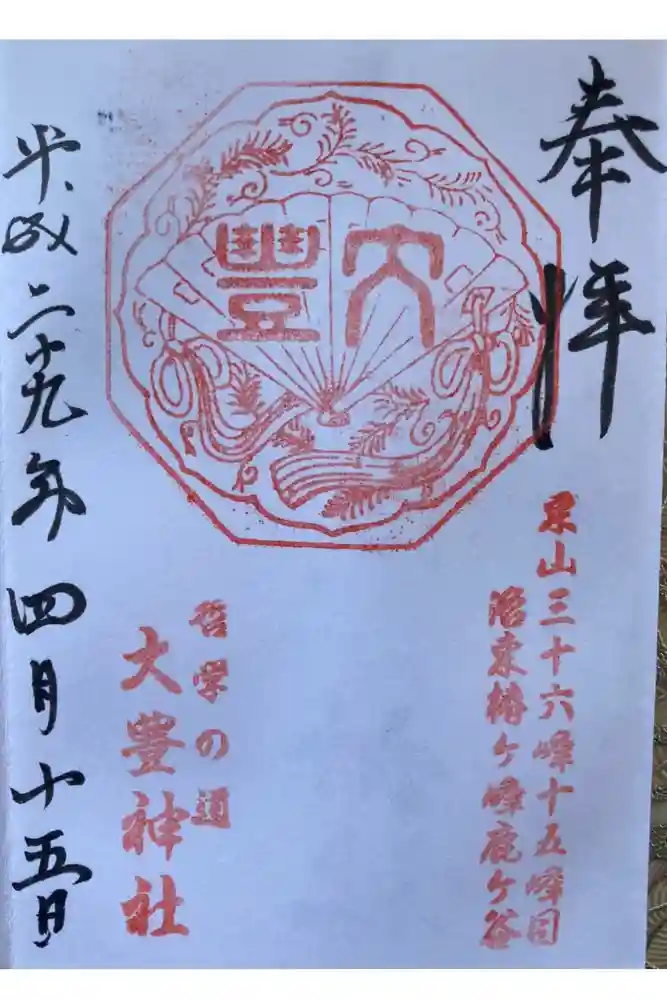 奉拝
東山三十六峰十五峰目
洛東椿ヶ峰鹿ヶ谷
大豊
哲学の道
大豊神社
平成二十九年四月十五日